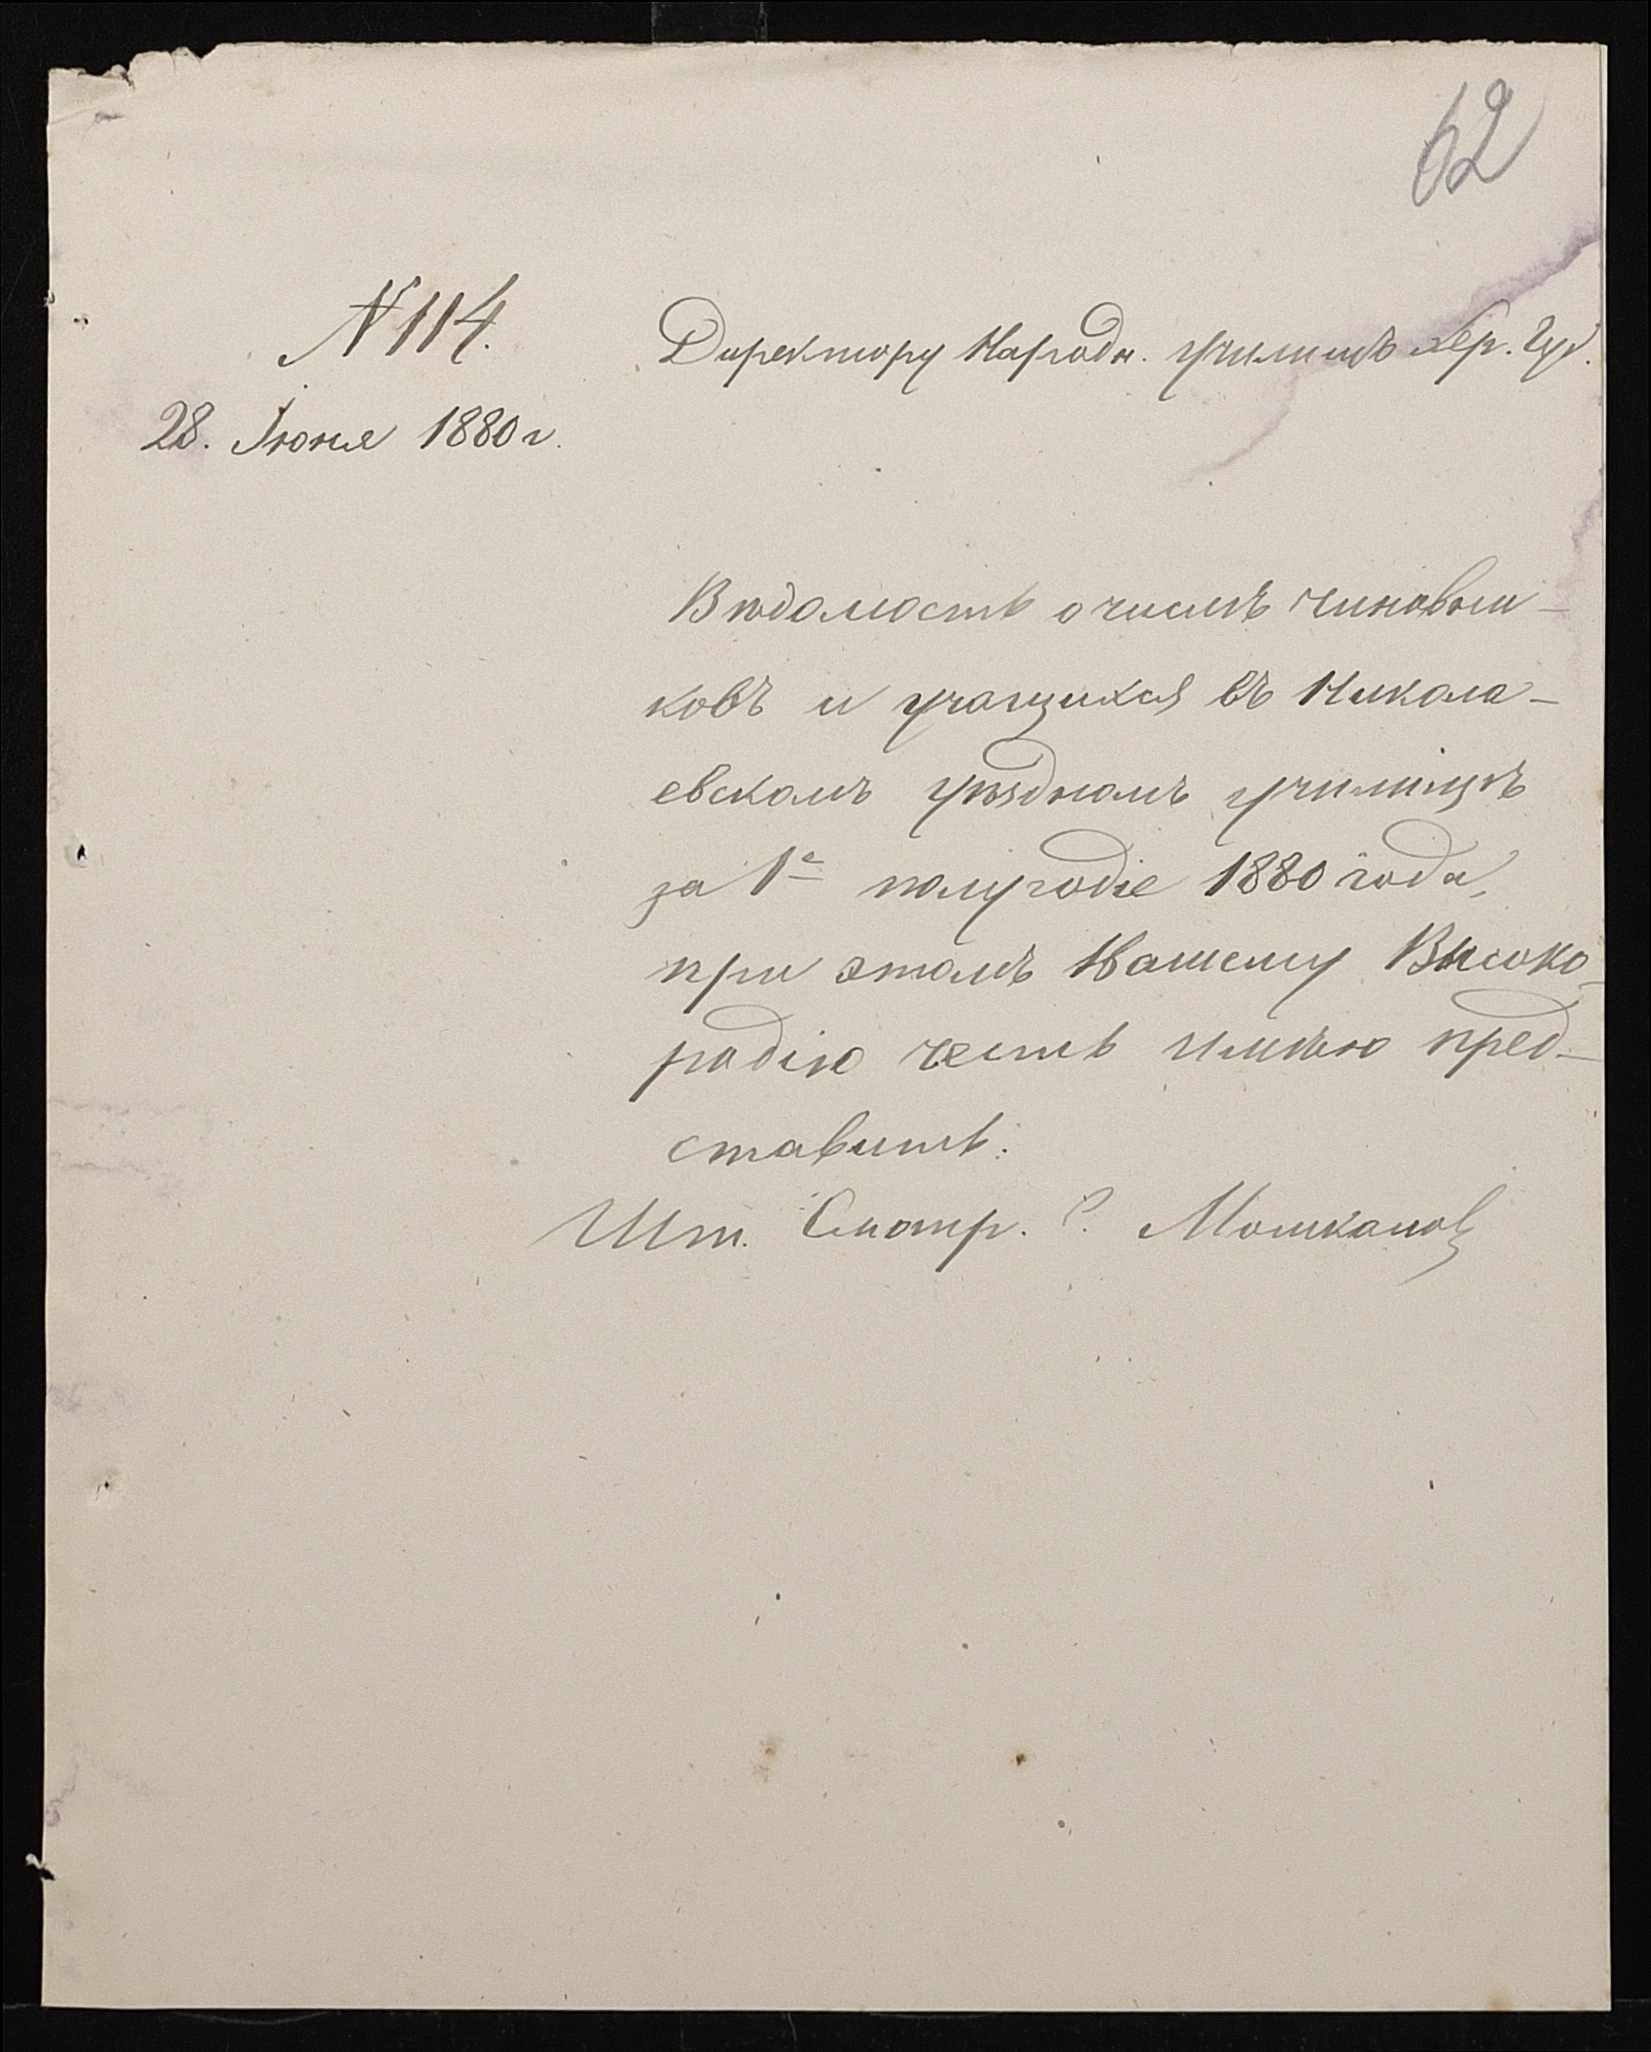 62
N 114.
Директору Народн. училищъ Хер. Губ.
28. Іюня 1880 г.
Вѣдомость о числѣ чиновни-
ковъ и учащихся въ Никола-
евскомъ уѣздномъ училищѣ
за 1е полугодіе 1880 года,
при этомъ Вашему Высоко-
родію честь имѣю пред-
ставить.
Шт. Смотр.